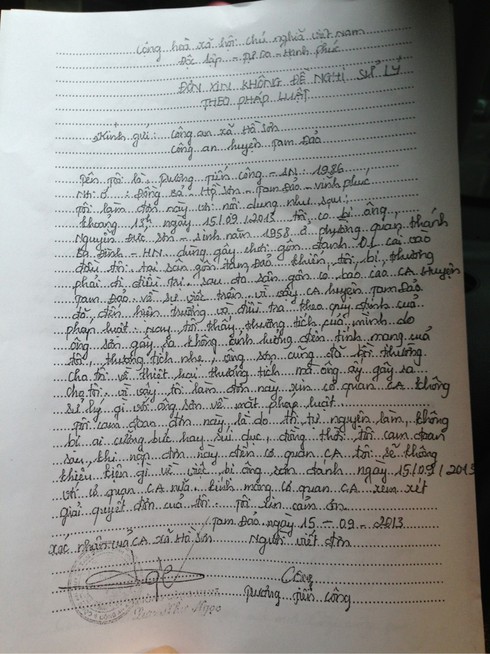 Cộng hoà xã hội chủ nghĩa việt nam
Độc lập - Tự Do - Hạnh phúc
ĐƠN XIN KHÔNG ĐỀ NGHỊ SỬ LÝ
THEO PHÁP LUẬT
Kính gửi: Công an xã Hồ Sơn
Công an huyện Tam Đảo
Tên Tôi là: Dương Tiến Công - SN: 1986
ở: Đồng Bả - Hồ Sơn - Tam Đảo - Vĩnh Phúc
Tôi làm đơn này với nội dung như sau:
khoảng 13h ngày 15/09/2013 tôi có bị ông
Nguyễn Đức Sơn - sinh năm 1958 ở phường quan thánh
Ba Đình - HN dùng gậy chơi gôn đánh 01 cái vào
đầu tôi tại sân gôn tam Đảo khiến tôi bị thương
phải đi điều trị sau đó sân gôn có báo cáo CA Huyện
Tam Đảo về sự việc trên vì vậy CA huyện Tam Đảo
đã đến hiện trường và điều tra theo quy định của
pháp luật. nay tôi thấy thương tích của mình do
ông sơn gây ra không ảnh hưởng đến tính mạng của
tôi, thương tích nhẹ, ông sơn cũng đã bồi thường
cho tôi về thiệt hại thương tích mà ông ấy gây ra
cho tôi. vì vậy tôi làm đơn này xin cơ quan CA không
sử lý gì với ông sơn về mặt pháp luật
tôi cam đoan đơn này là do tôi tự nguyện làm, không
bị ai cưỡng bức hay súi dục, đồng thời tôi cam đoan
sau khi nộp đơn này đến cơ quan CA tôi sẽ không
khiếu kiện gì về việc bị ông sơn đánh ngày 15/09/2013
với cơ quan CA nữa. kính mong cơ quan CA xem xét
giải quyết đơn của tôi. Tôi xin cảm ơn
Tam Đảo ngày 15 - 09 - 2013
Xác nhận của CA xã Hồ Sơn Người viết đơn
Công
Dương Tiến Công
Ngọc